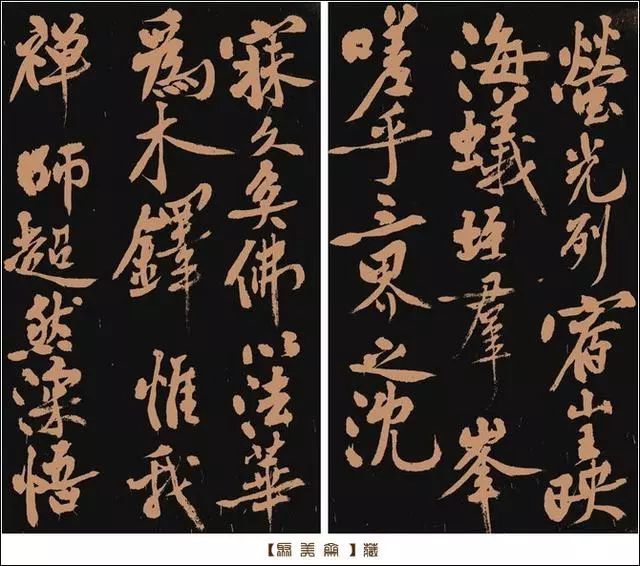 螢光列宿山王映
海蟻垤羣峯
嗟乎三界之沈
寐久矣佛以法華
爲木鐸惟我
禅師超然深悟
【美】藏